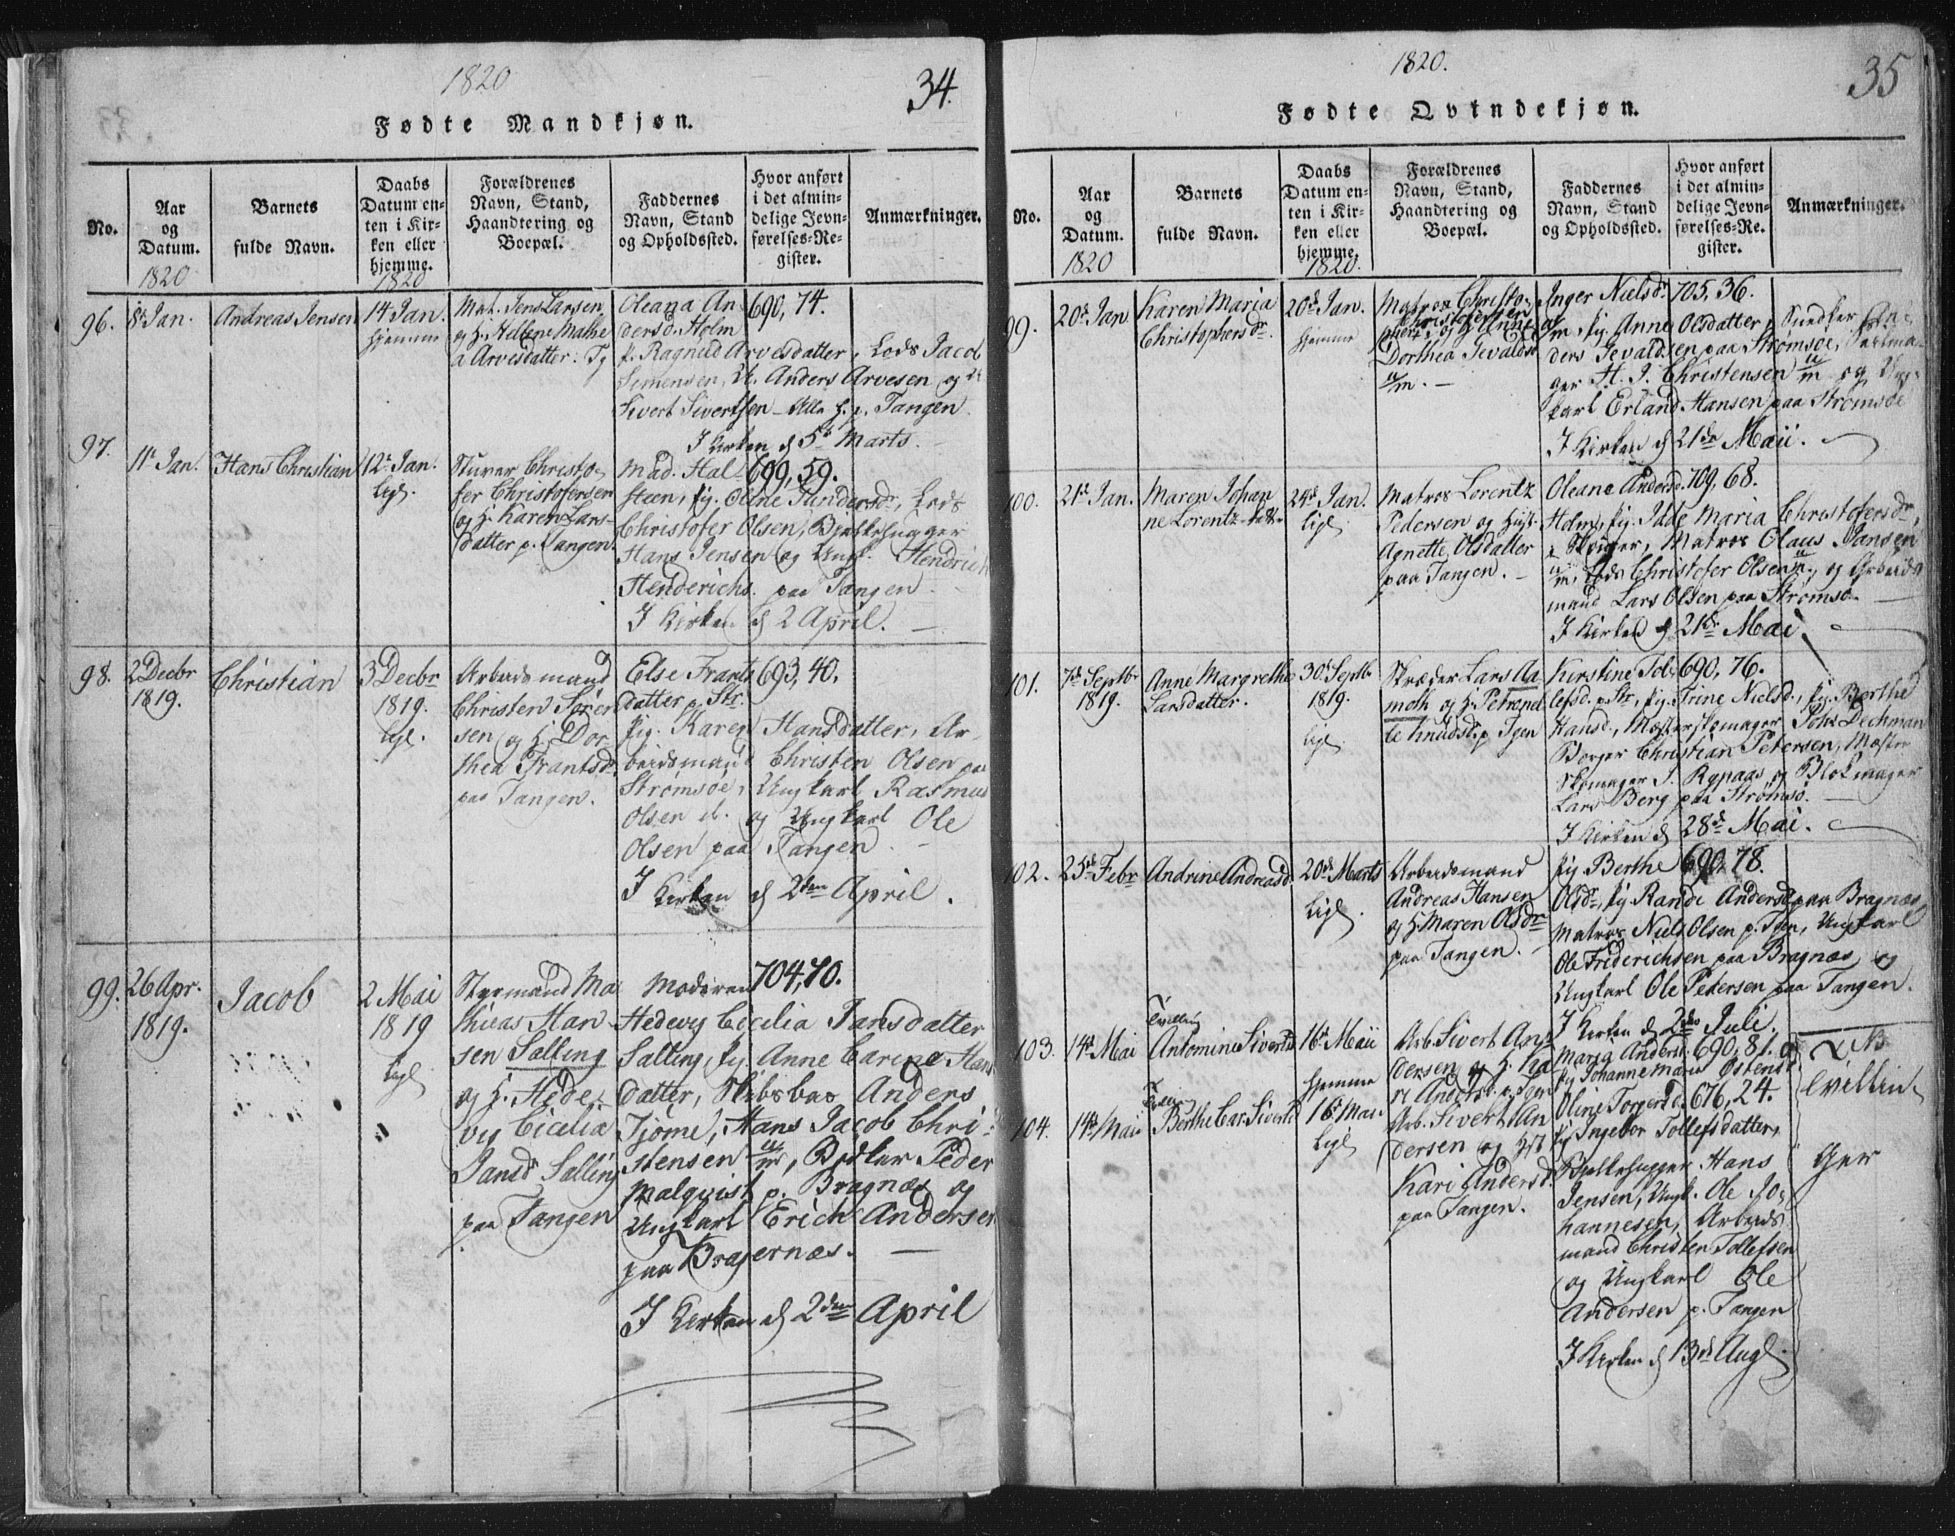 1820
34.
Fødte Mandkjøn.
No.
Aar
og
Datum.
1820
Barnets
fulde Navn.
Daabs
Datum en-
ten i Kir-
ken eller
hjemme.
1820
Forældrenes
Navn, Stand,
Haandtering og
Boepæl.
Faddernes
Navn, Stand
og Opholdssted.
Hvor anført
i det almin-
delige Jevn-
førelses-Re-
gister.
Anmærkninger.
96.
8d Jan.
Andreas Jensen
14 Jan.
hjemme
Mat. Jens Larsen
og H. Hellene Mathe
a Arvesdatter. Tg
Oleana An-
dersd. Holm
p. Ragnild Arvesdatter, Lods Jacob
Simensen, U. Anders Arvesen og U
Sivert Sivertsen - Alle h. p. Tangen.
I Kirken d 5t Marts.
690, 74.
97.
11t Jan.
Hans Christian
12t Jan.
ligl.
Sturer Christo-
fer Christofersen
og H. Karen Lars-
datter p. Tangen.
Mad. Hal-
steen, pig. Oline Gundersdr, Lods
Christofer Olsen, Bielkehugger
Hans Jensen og Ungk. Hendrich
Henderichs. paa Tangen.
I Kirken d 2 April.
699, 59.
98.
2 Decbr
1819.
Christian
3 Decbr
1819.
ligl.
Arbeidsmand
Christen Søren
sen og H. Dor-
thea Frantsd.
paa Tangen.
Else Frants
datter p. Str.
pig. Karen Hansdatter, Ar-
beidsmand Christen Olsen paa
Strømsøe, Ungkarl Rasmus
Olsen d. og Ungkarl Ole
Olsen paa Tangen.
I Kirken d 2den April.
693, 40.
99.
26 Apr.
1819.
Jacob
2 Mai
1819
ligl
Styrmand Ma
thias Han-
sen Salling
og H. Hede-
vig Cicilia
Jansdr Salling
paa Tangen
Moderen
Hedevig Cicilia Jansdatter
Salling, pig Anne Carine Hans
datter, Skibsbas Anders
Tjøme, Hans Jacob Chri-
stensen u/m, Bødker Peder
Malqvist p. Bragnæs og
Ungkarl Erich Andersen
paa Bragernæs.
I Kirken d 2den April
704, 70.
1820.
35
Fødte Qvindekjøn.
No.
Aar
og
Datum.
1820
Barnets
fulde Navn.
Daabs
Datum en-
ten i Kir-
ken eller
hjemme.
1820.
Forældrenes
Navn, Stand,
Haandtering og
Boepæl.
Faddernes
Navn, Stand
og Opholdssted.
Hvor anført
i det almin-
delige Jevn-
førelses-Re-
gister.
Anmærkninger.
99.
20d Jan
Karen Maria
Christophersdr.
20d Jan.
hjemme
Matros Christo-
pher Christophersen
og H. Anne
Dorthea Gevaldsd
u/m.
Inger Nielsdr
u/m, pig. Anne Olsdatter, Snedker An-
ders Gevaldsen paa Strømsøe, Seilma-
ger H. J. Christensen u/m og Ung-
karl Erland Hansen paa Strømsøe
I Kirken d 21de Maii.
705, 36.
100.
21d Jan.
Maren Johan
ne Lorentz-datt
24d Jan.
ligl
Matros Lorentz
Pedersen og Hust.
Agnette Olsdatter
paa Tangen.
Oleane Andersd.
Holm, pig. Idde Maria Christofersdr,
Skoger, Matros Claus Jansen
u/m, Lods Christofer Olsen u/m, og Arbeids
mand Lars Olsen paa Strømsø.
I Kirken d 21de Mai.
709, 68.
101.
7d Septbr
1819.
Anne Margrethe
Larsdatter.
30d Septb
1819.
ligl
Skræder Lars Aa
moth og H. Petronel
le Knudsd. p. Tgen
Kirstine Tol-
lefsd. p. Str, pig. Trine Nielsd., pig. Berthe
Hansd., Mester Skomager Johs Dechman
Borger Christian Petersen, Mester
Skomager J. Rypaas og Blokmager
Lars Berg paa Strømsø.
I Kirken d 28de Mai.
690, 76.
102.
25d Febr
Andrine Andreasd.
20d Marts
Ligl.
Arbeidsmand
Andreas Hansen
og H. Maren Olsdr
paa Tangen.
pig Berthe
Olsdr, pig. Randi Andersd. paa Bragnæs
Matros Niels Olsen p. Tgen, Ungkarl
Ole Friderichsen paa Bragnæs og
Ungkarl Ole Petersen paa Tangen.
I Kirken d 2den Juli.
690, 78.
103.
14d Mai
Tvilling
Antomine Sivertsd
16d Maii
hjemme
Arb. Sivert An-
dersen og H. Ka-
ri Andersd. p. Tgen
Maria Andersd.
pig Johanne Maria Østensd
690, 81.
NB
Tvillin
ger
104.
14d Mai
Tvilling
Berthe Car. Sivertsd
16d Mai
ligl
Arb. Sivert An
dersen og Hst
Kari Andersd.
paa Tangen.
Oline Torgersd.
pig Ingebor Tollefsdatter,
Bielkehugger Hans
Jensen, Ungk. Ole Jo-
hannesen, Arbeids
mand Christen Tollefsen
og Ungkarl Ole
Andersen p. Tangen
I Kirken d 13d Augl.
676, 24.